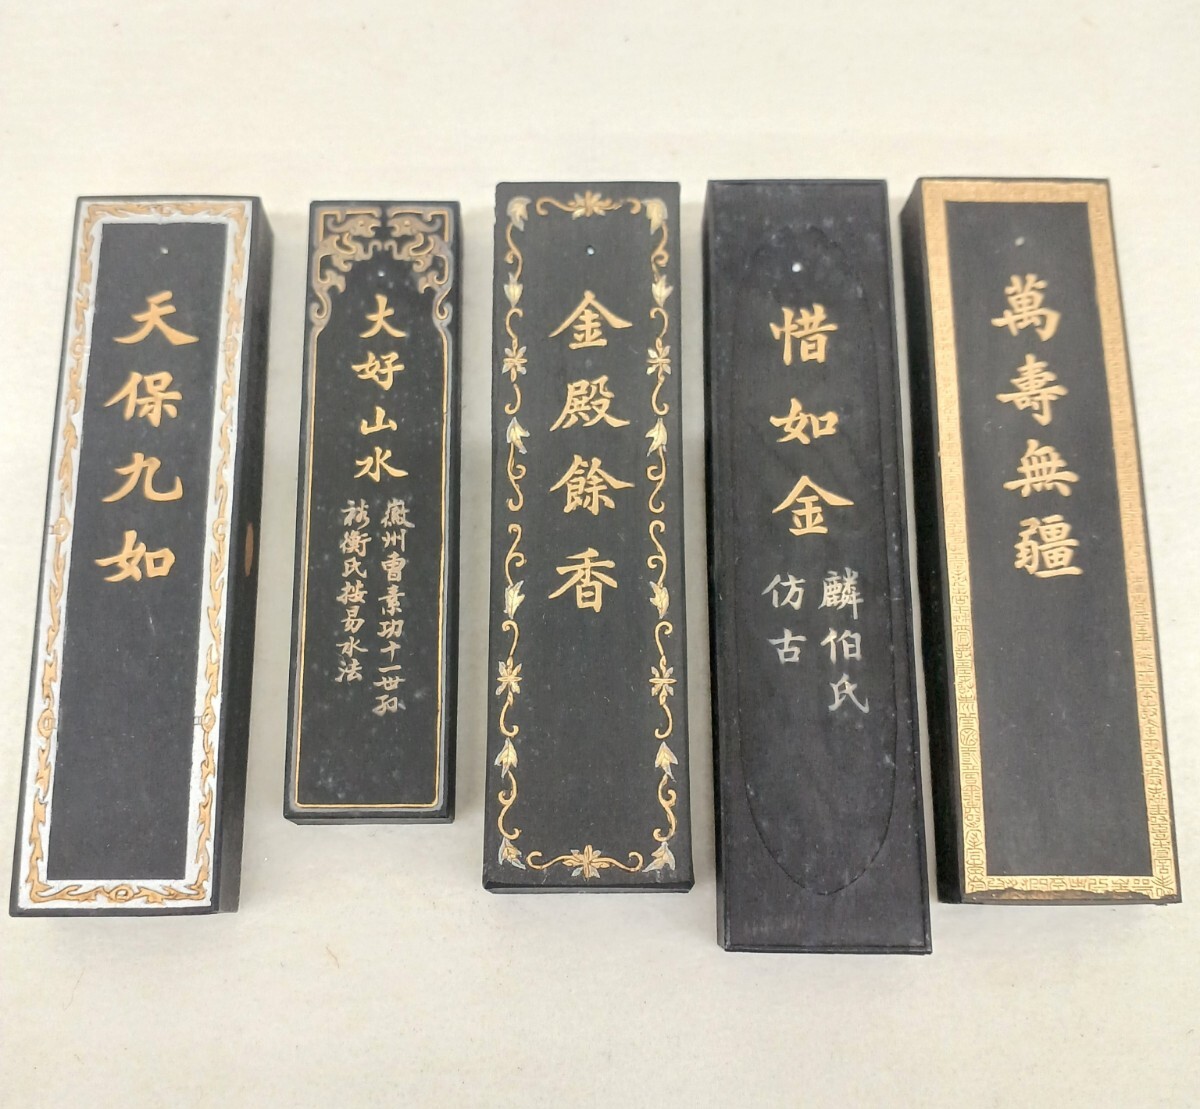 天保九如
大好山水
徽州曹素功十一世孫
裕衡氏按易水法
金殿餘香
惜如金
麟伯氏
仿古
萬壽無疆